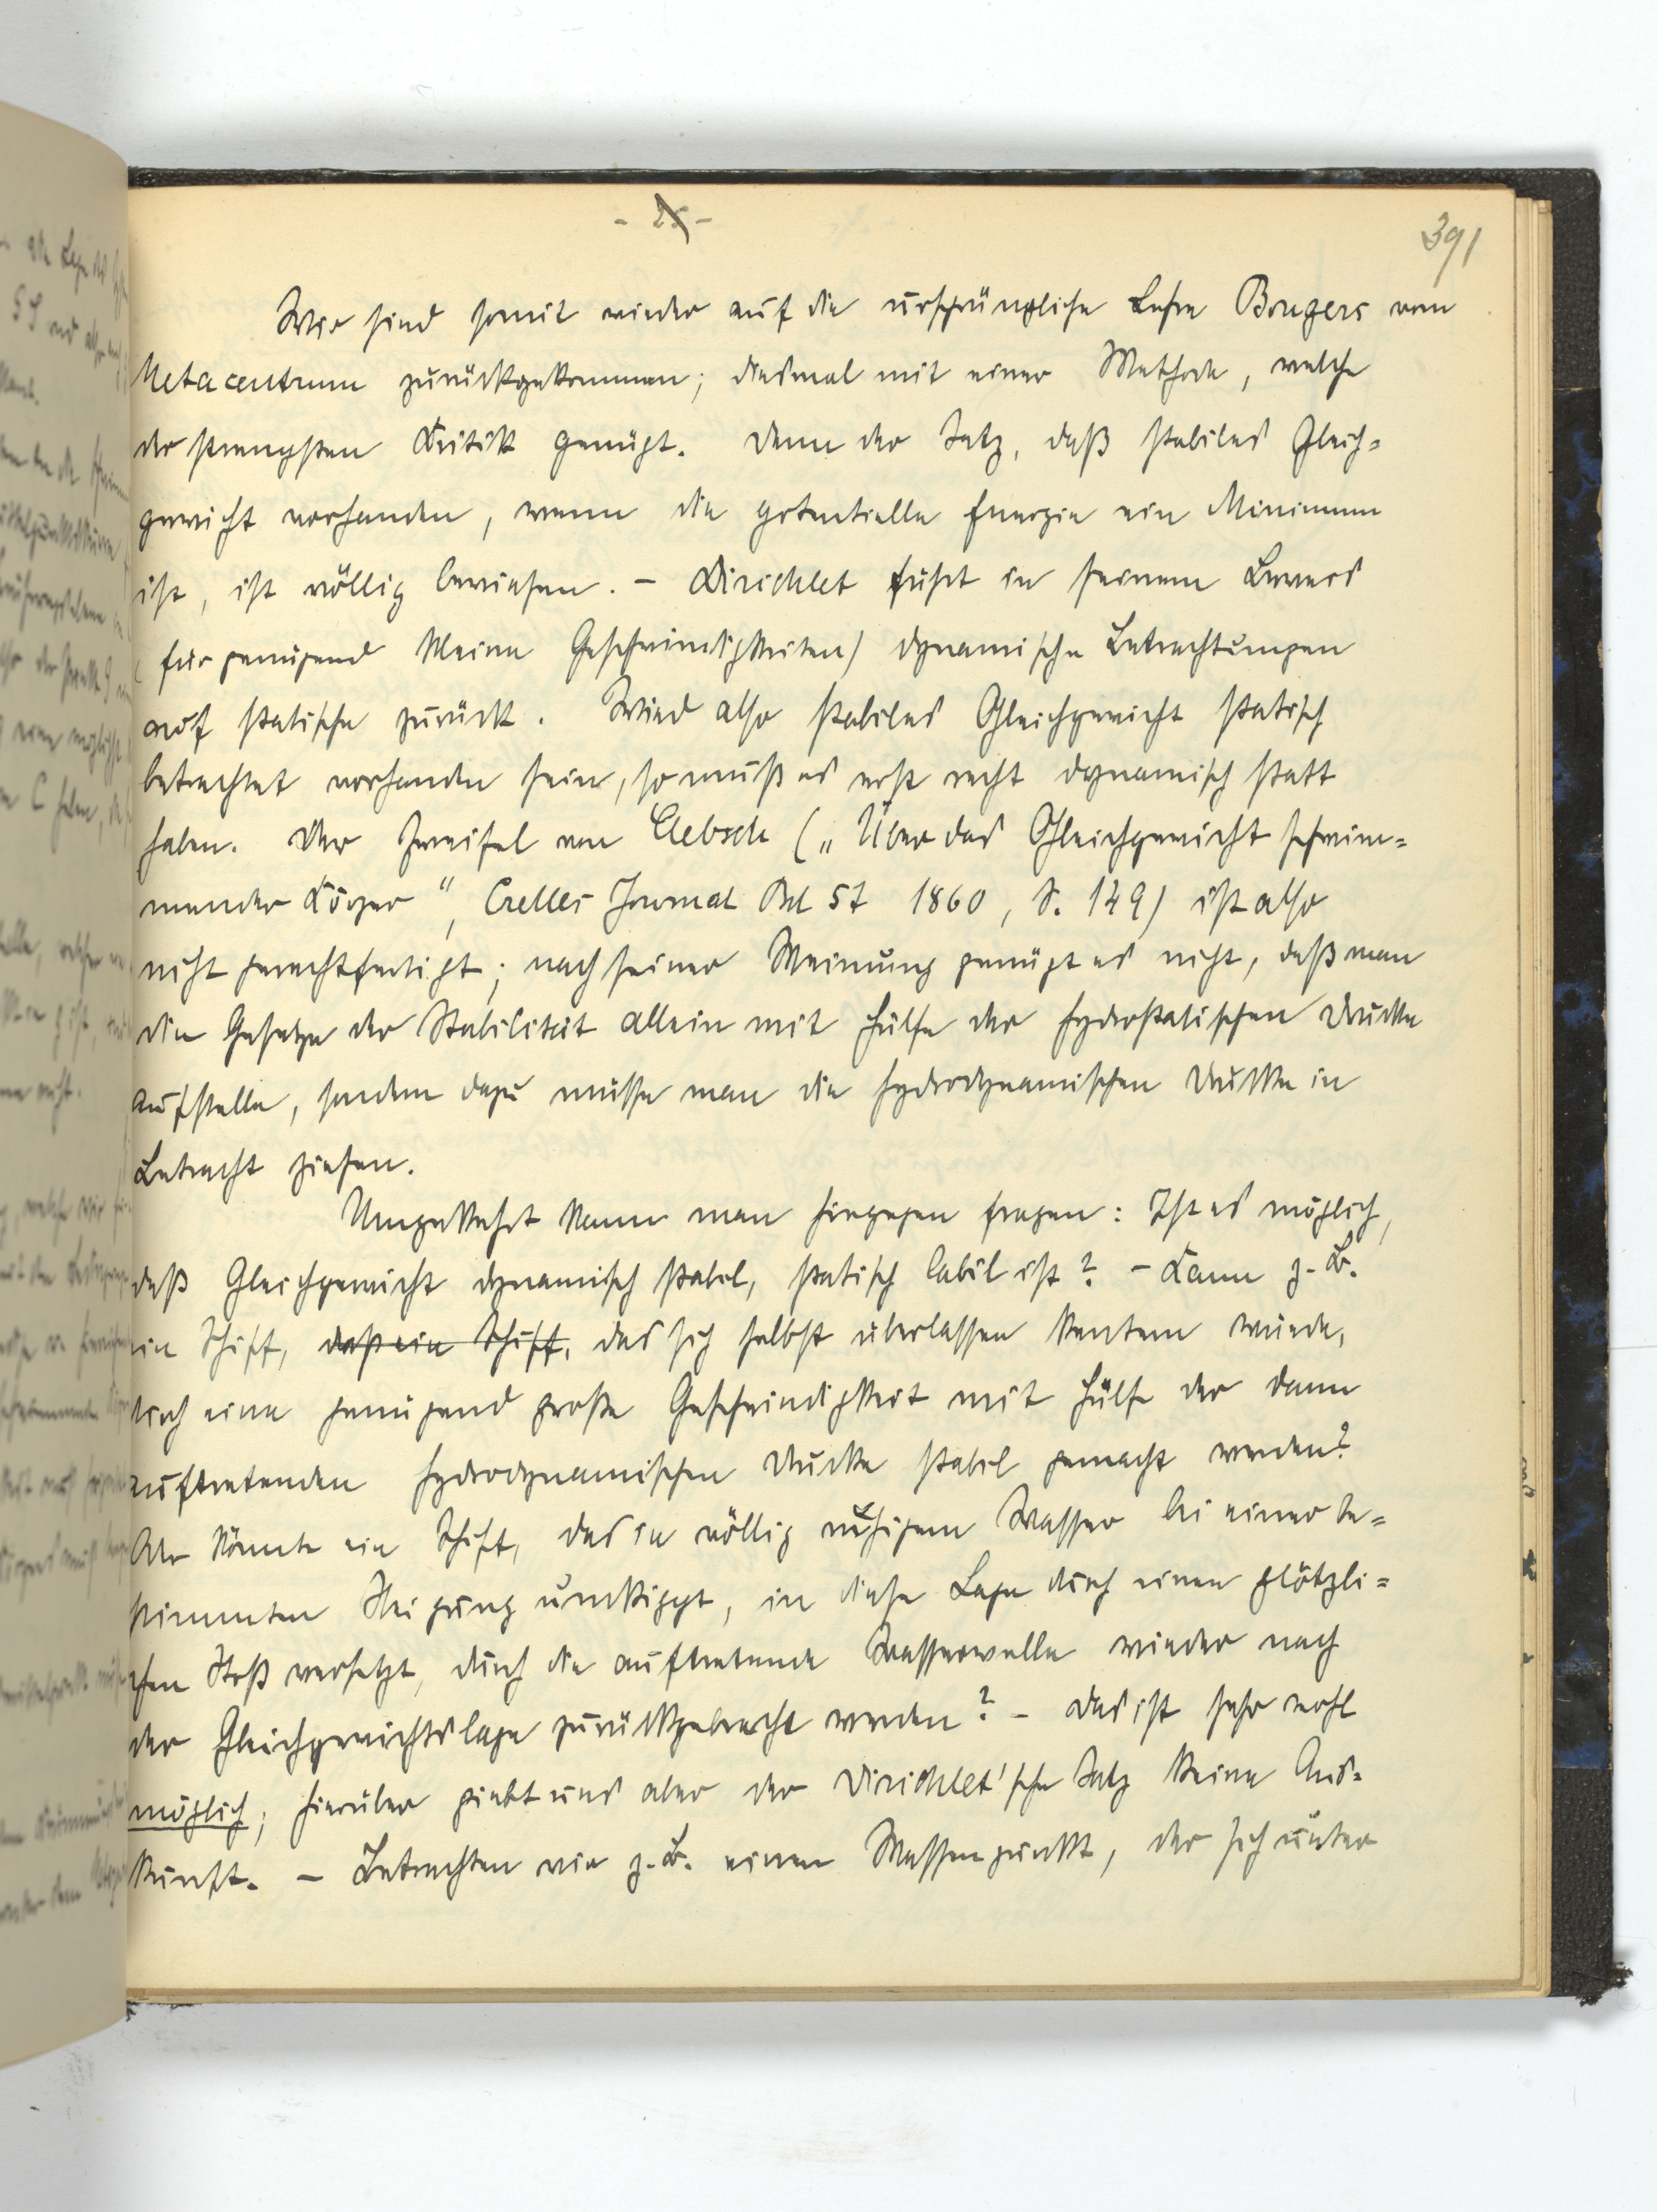 - 25 -
391
Wir sind somit wieder auf die ursprüngliche Lehre Bougers vom
Metacentrum zurückgekommen; diesmal mit einer Methode, welche
der strengsten Kritik genügt. Denn der Satz, daß stabiles Gleich=
gewicht vorhanden, wenn die potentielle Energie ein Minimum
ist, ist völlig bewiesen. - Dirichlet führt in seinem Beweis
(für genügend kleine Geschwindigkeiten) dynamische Betrachtungen
auf statische zurück. Wird also stabiles Gleichgewicht statisch
betrachtet vorhanden sein, so muß es erst recht dynamisch statt
haben. Der Zweifel von Clebsch („Über das Gleichgewicht schwim=
mender Körper", Crelles Journal Bd 57 1860, S. 149) ist also
nicht gerechtfertigt; nach seiner Meinung genügt es nicht, daß man
die Gesetze der Stabilität allein mit Hülfe der hydrostatischen Drucke
aufstelle, sondern dazu müsse man die hydrodynamischen Drucke in
Betracht ziehen.
Umgekehrt kann man hingegen fragen: Ist es möglich,
daß Gleichgewicht dynamisch stabil, statisch labil ist? - Kann z. B.
ein Schiff, daß ein Schiff, das sich selbst überlassen kentern würde,
durch eine genügend große Geschwindigkeit mit Hülfe der dann
auftretenden hydrodynamischen Drucke stabil gemacht werden?
Oder könnte ein Schiff, das in völlig ruhigem Wasser bei einer be=
stimmten Neigung umkippt, in diese Lage durch einen plötzli=
chen Stoß versetzt, durch die auftretende Wasserwelle wieder nach
der Gleichgewichtslage zurückgebracht werden? - Das ist sehr wohl
möglich; hierüber giebt uns aber der Dirichlet'sche Satz keine Aus=
kunft. - Betrachten wir z. B. einen Massenpunkt, der sich unter